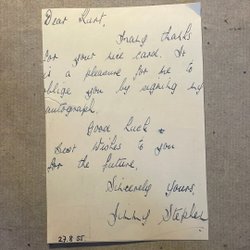 Dear Kurt,
Many thanks
for your nice card. It
is a pleasure for me to
oblige you by signing my
autograph
Good Luck &
Best Wishes to you
for the future.
Sincerely yours,
Jimmy Stephen
27.8.55.